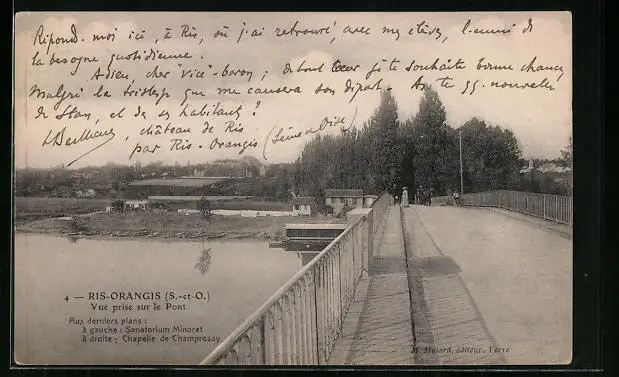 Répond. moi ici, à Ris, où j'ai retrouvé, avec mes élèves, l'ennui de
la besogne quotidienne.
Adieu, cher "vice"-baron; de tout cœur je te souhaite bonne chance,
Malgré la tristesse que me causera ton départ. As-tu qq. nouvelle
de Stan, et de ses habitants?
château de Ris
par Ris-Orangis (Seine et Oise)
4 — RIS-ORANGIS (S.-et-O.)
Vue prise sur le Pont
Aux derniers plans :
à gauche : Sanatorium Minoret
à droite ; Chapelle de Champrosay
M. Mulard, éditeur, Yerre